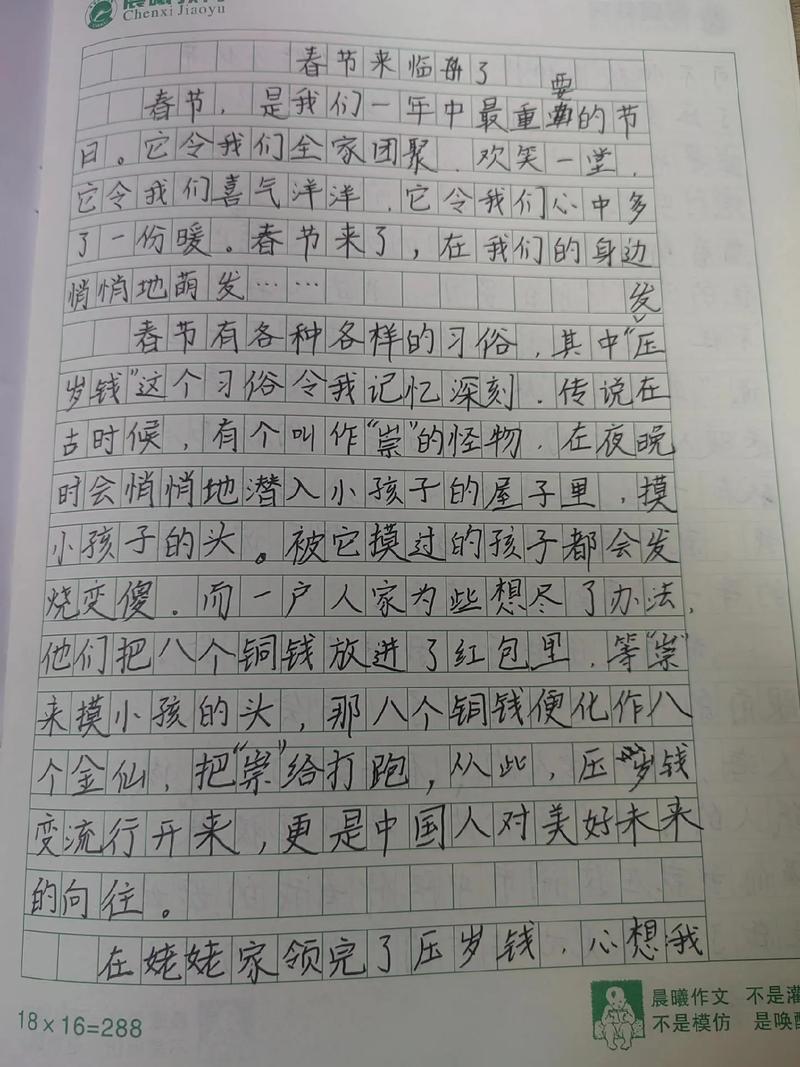 Chenxi Jiaoyu
春节来临了
要
春节，是我们一年中最重的节
日。它令我们全家团聚，欢笑一堂，
它令我们喜气洋洋，它令我们心中多
了一份暖。春节来了，在我们的身边
悄悄地萌发……
发
春节有各种各样的习俗，其中“压
岁钱”这个习俗令我记忆深刻。传说在
古时候，有个叫作“祟”的怪物，在夜晚
时会悄悄地潜入小孩子的屋子里，摸
小孩子的头。被它摸过的孩子都会发
烧变傻。而一户人家为些想尽了办法，
他们把八个铜钱放进了红包里，等“祟”
来摸小孩的头，那八个铜钱便化作八
个金仙，把“祟”给打跑，从此，压岁钱
变流行开来，更是中国人对美好未来
的向往。
在姥姥家领完了压岁钱，心想我
18×16=288
晨曦作文 不是灌
不是模仿 是唤